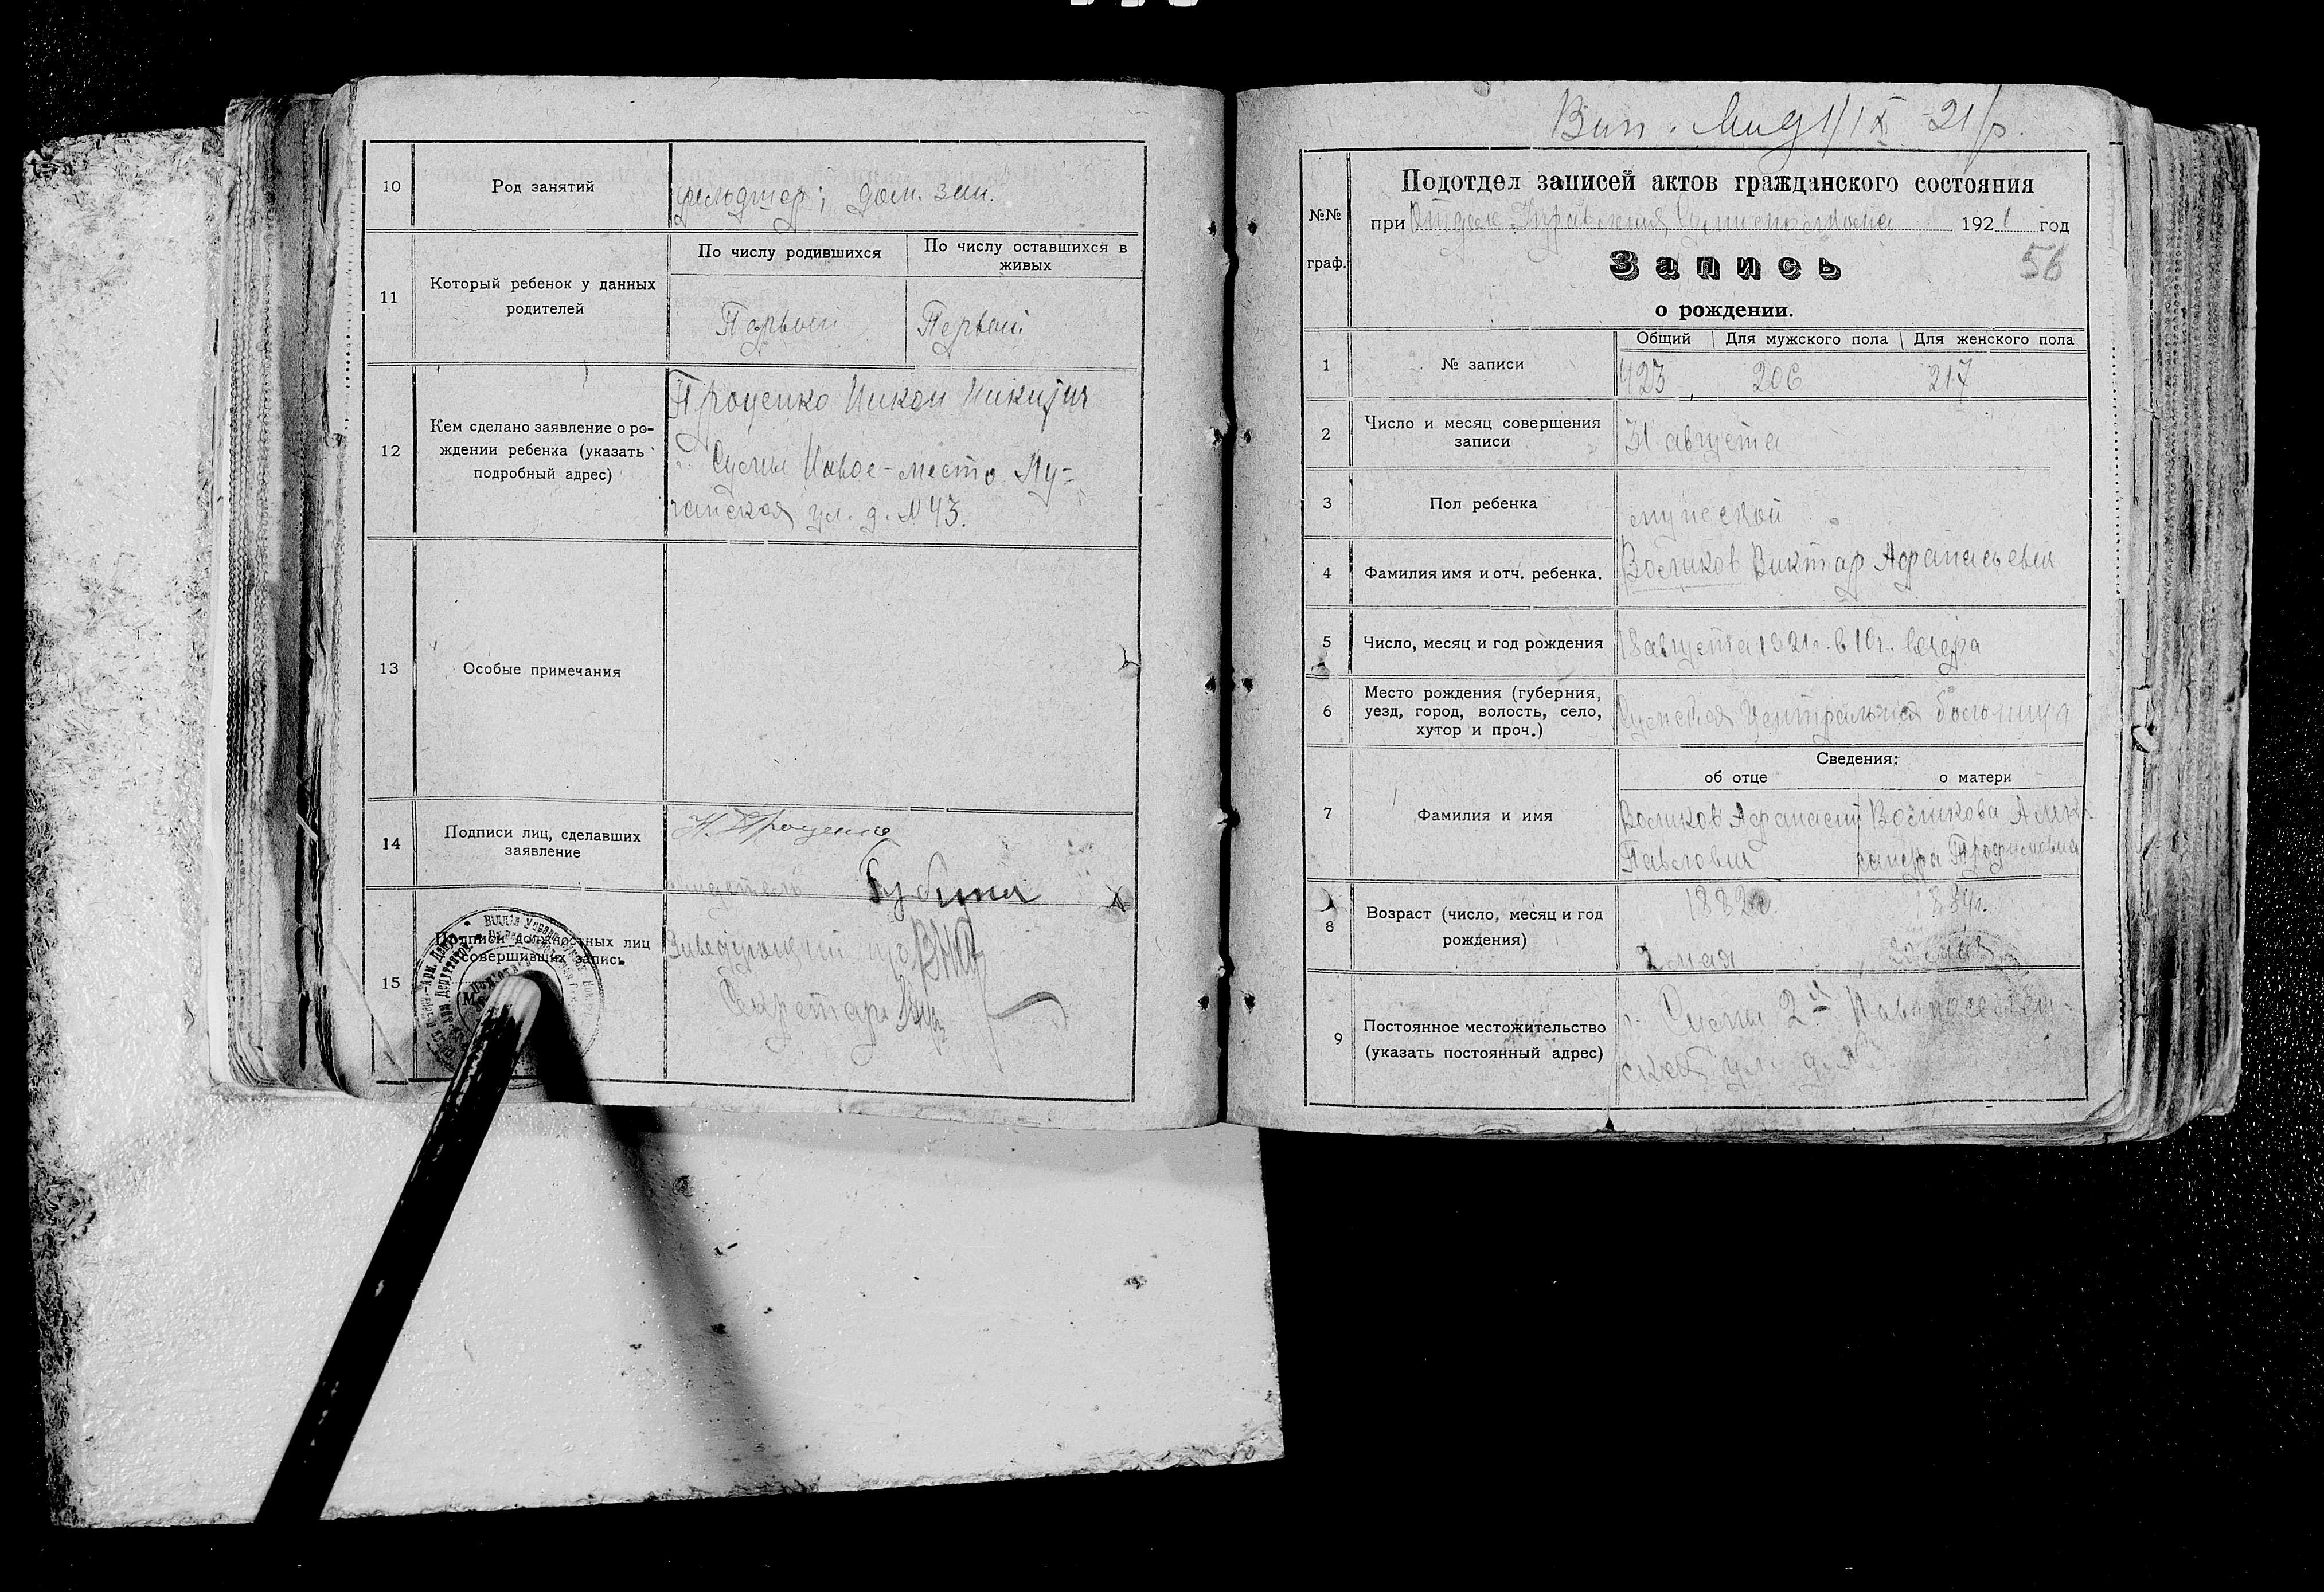 10
Род занятий
фельдшер; дом. зан.
11
Который ребенок у данных
родителей
По числу родившихся
По числу оставшихся в
живых
Первый
Первый
12
Кем сделано заявление о ро-
ждении ребенка (указать
подробный адрес)
Проценко Никон Никитич
г. Сумы Новое-место Лу-
ганская ул. д. №43.
13
Особые примечания
14
Подписи лиц, сделавших
заявление
Н. Проценко
15
Подписи должностных лиц
совершивших запись
Заведующий
Секретарь
1/IX 21 р.
№№
граф.
Подотдел записей актов гражданского состояния
при Отделе Управления 1921 год
56
Запись
о рождении.
1
№ записи
Общий
Для мужского пола
Для женского пола
423
206
217
2
Число и месяц совершения
записи
31 августа
3
Пол ребенка
мужской
4
Фамилия имя и отч. ребенка.
Виктор Афанасьевич
5
Число, месяц и год рождения
18 августа 1921 г. в 10 ч. вечера
6
Место рождения (губерния,
уезд, город, волость, село,
хутор и проч.)
Сумская Центральная больница
Сведения:
об отце
о матери
7
Фамилия и имя
Афанасий
Павлович
Алек-
сандра Трофимовна
8
Возраст (число, месяц и год
рождения)
1882 г.
2 мая
9
Постоянное местожительство
(указать постоянный адрес)
г. Сумы 2-я Новопоселен-
ская ул. д. №